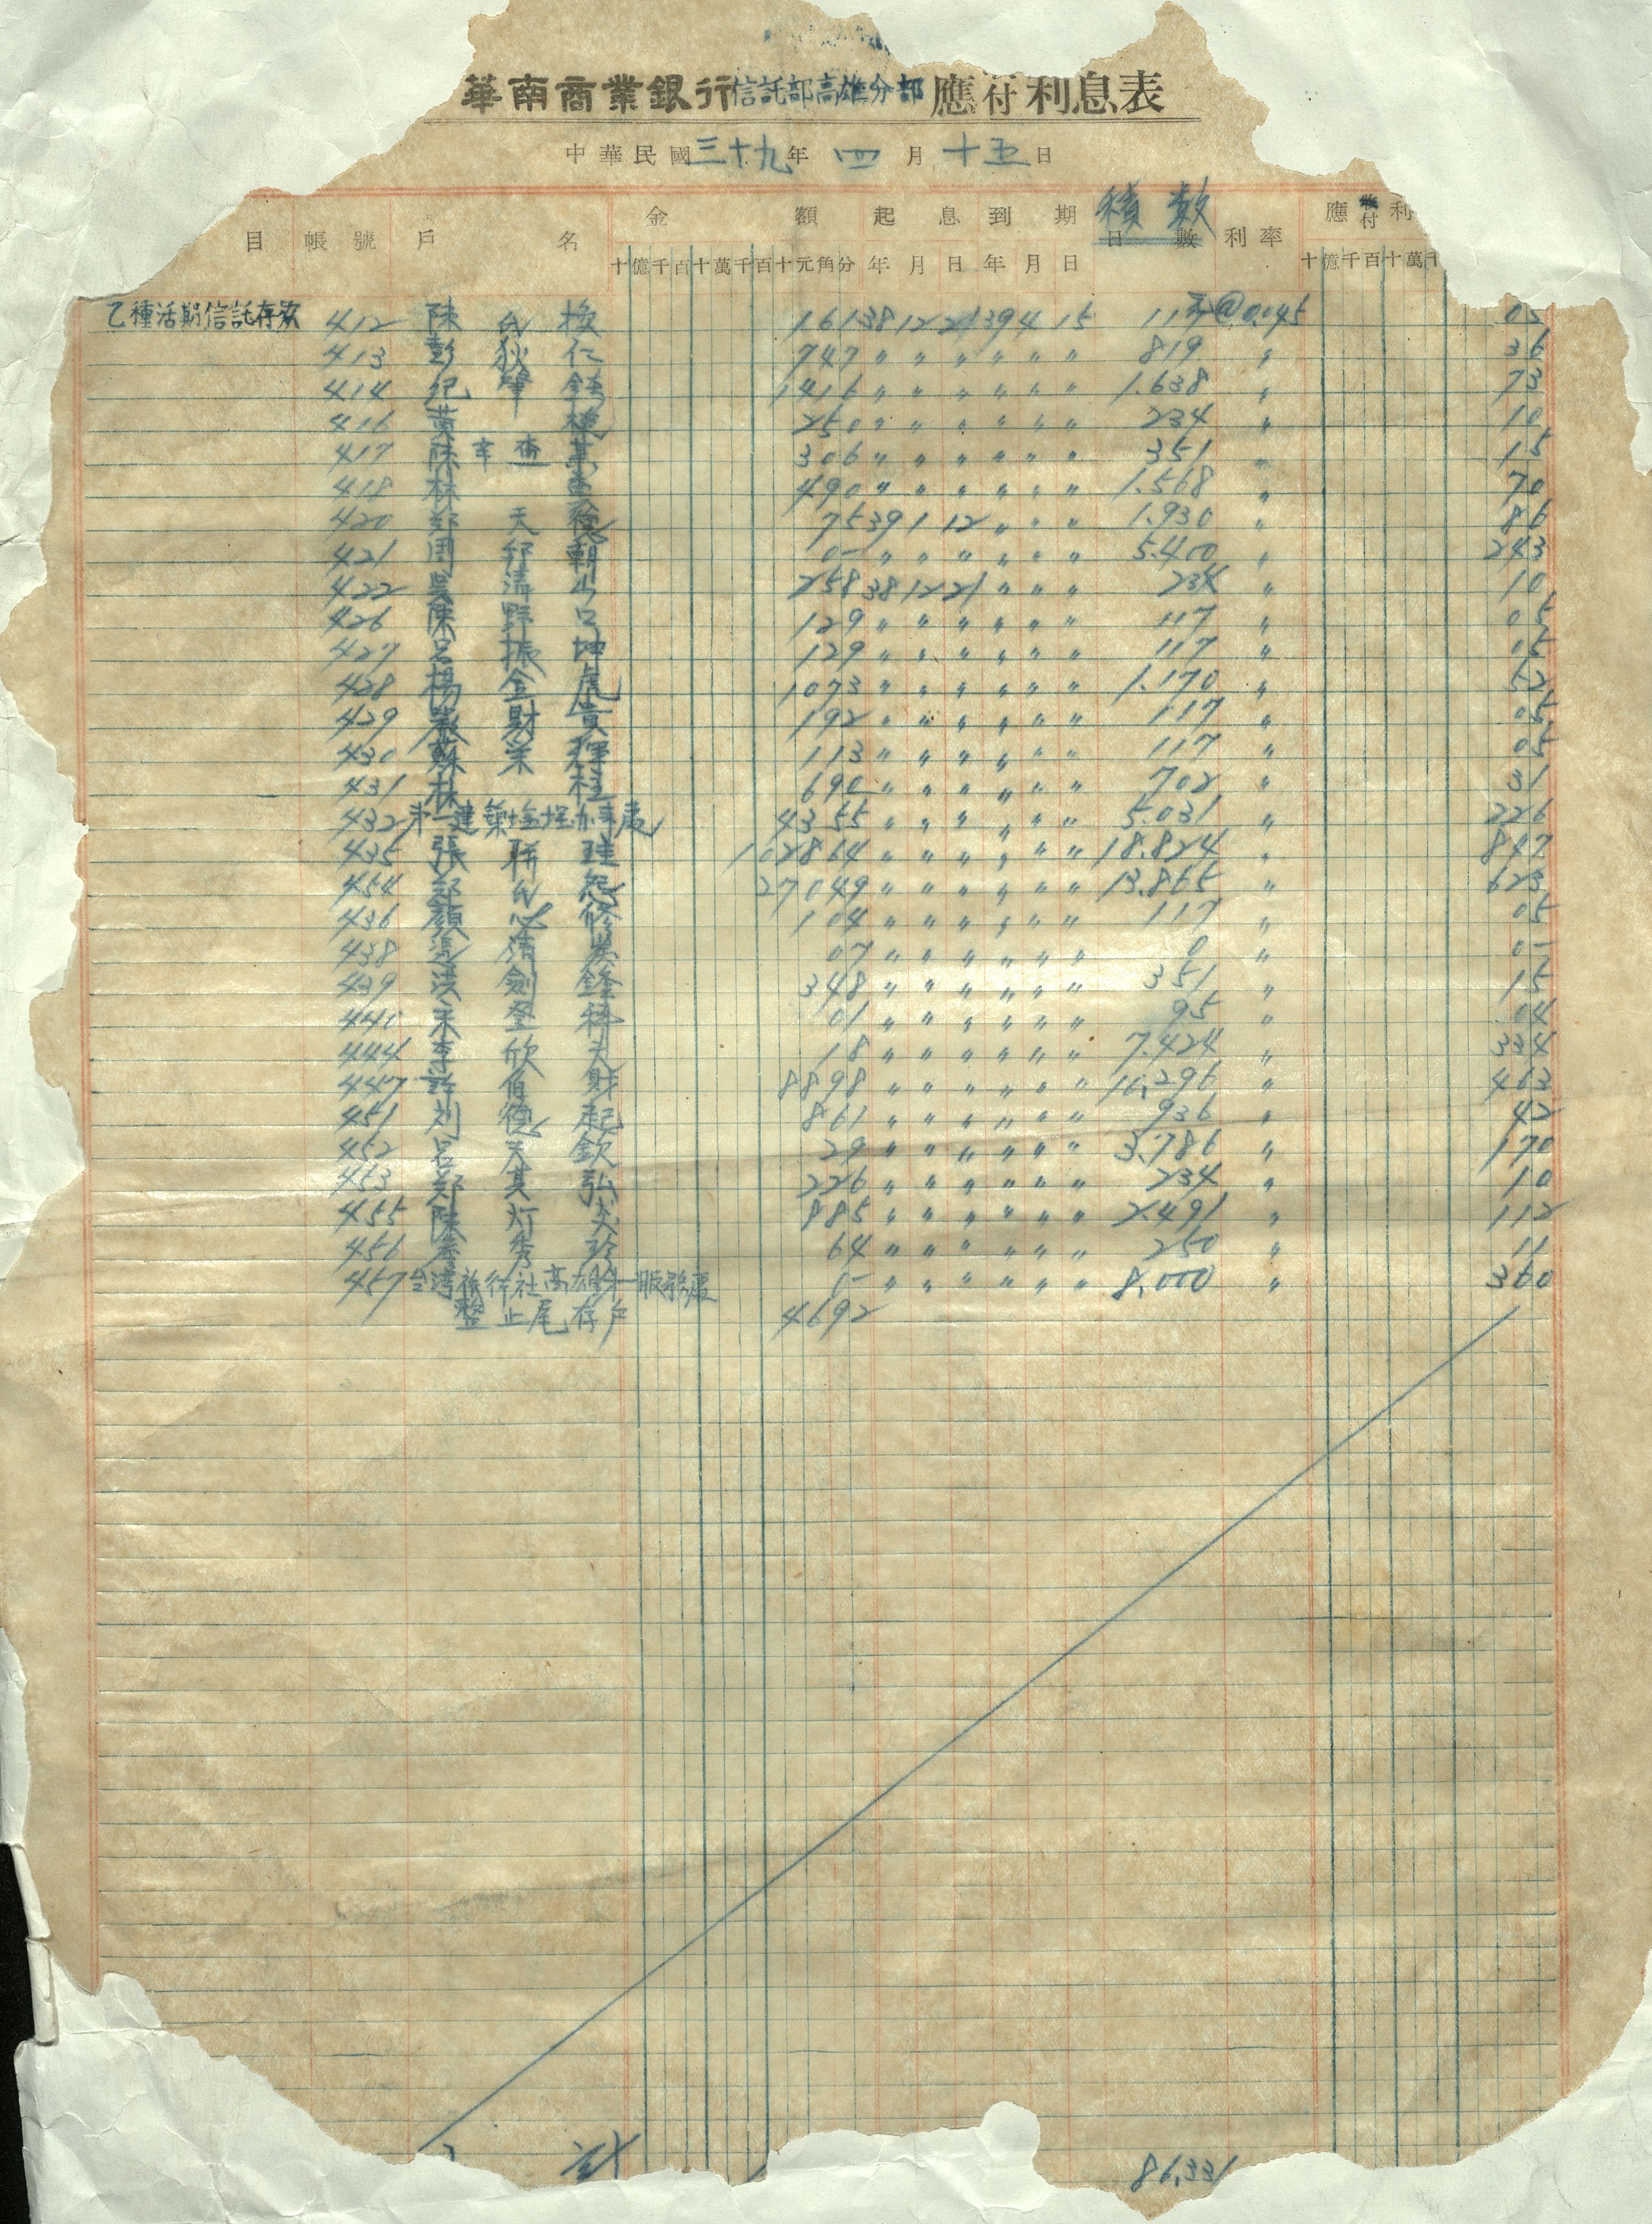 華南商業銀行信託部高雄分部應付利息表
中華民國三十九年四月十五日
目 帳號 戶名 金額 起息 到期 積數 日數 利率 應付利
十億千百十萬千百十元角分 年月日 年月日 十億千百十萬千
乙種活期信託存款 412 陳氏換 161 38 12 21 39 4 15 117 @0.045 05
413 彭狄仁 747 〃 〃 〃 〃 〃 〃 819 〃 36
414 紀肇 1416 〃 〃 〃 〃 〃 〃 1.638 〃 73
416 黃 250 〃 〃 〃 〃 〃 〃 234 〃 10
417 陳 306 〃 〃 〃 〃 〃 〃 351 〃 15
418 林 490 〃 〃 〃 〃 〃 〃 1.568 〃 70
420 郑天德 75 39 1 12 〃 〃 〃 1.930 〃 86
421 周朝 0- 〃 〃 〃 〃 〃 〃 5.400 〃 243
422 吳清山 258 38 12 21 〃 〃 〃 234 〃 10
426 陳野口 129 〃 〃 〃 〃 〃 〃 117 〃 05
427 呂振坤 129 〃 〃 〃 〃 〃 〃 117 〃 05
428 楊金虎 1073 〃 〃 〃 〃 〃 〃 1.170 〃 52
429 財貴 192 〃 〃 〃 〃 〃 〃 117 〃 05
430 蘇荣輝 113 〃 〃 〃 〃 〃 〃 117 〃 05
431 林柱 690 〃 〃 〃 〃 〃 〃 702 〃 31
432 建築 4355 〃 〃 〃 〃 〃 〃 5.031 〃 226
435 張聯珪 102864 〃 〃 〃 〃 〃 〃 18.824 〃 847
454 郑氏 27049 〃 〃 〃 〃 〃 〃 13.865 〃 623
436 顏心修 104 〃 〃 〃 〃 〃 〃 117 〃 05
438 07 〃 〃 〃 〃 〃 〃 0 〃 0-
439 洪劍鋒 348 〃 〃 〃 〃 〃 〃 351 〃 15
440 登科 01 〃 〃 〃 〃 〃 〃 95 〃 04
444 李欣夫 18 〃 〃 〃 〃 〃 〃 7.424 〃 334
447 許有財 8898 〃 〃 〃 〃 〃 〃 10,296 〃 463
451 刘德起 861 〃 〃 〃 〃 〃 〃 936 〃 42
452 呂天欽 29 〃 〃 〃 〃 〃 〃 3.786 〃 170
453 郑其弘 226 〃 〃 〃 〃 〃 〃 234 〃 10
455 陳灯炎 885 〃 〃 〃 〃 〃 〃 2491 〃 112
456 秀玲 64 〃 〃 〃 〃 〃 〃 250 〃 11
457 台湾旅行社高雄服務處 0- 〃 〃 〃 〃 〃 〃 8,000 〃 360
整止尾存戶 4692
計 86,331